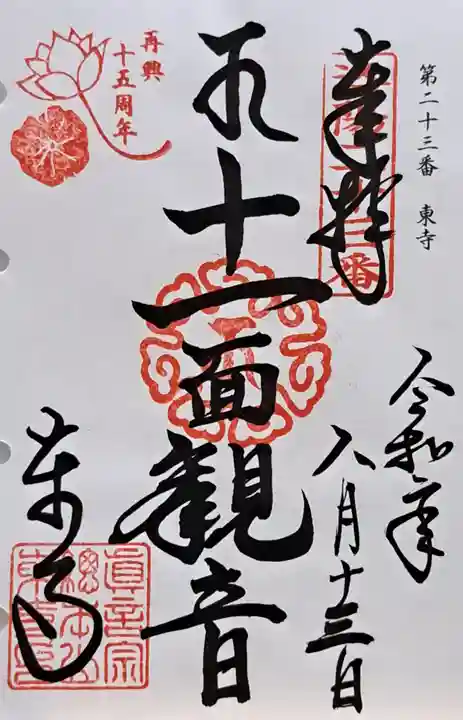 第二十三番 東寺
奉拝
令和二年
八月十三日
十一面観音
東寺
再興
十五周年
真言宗
総本山